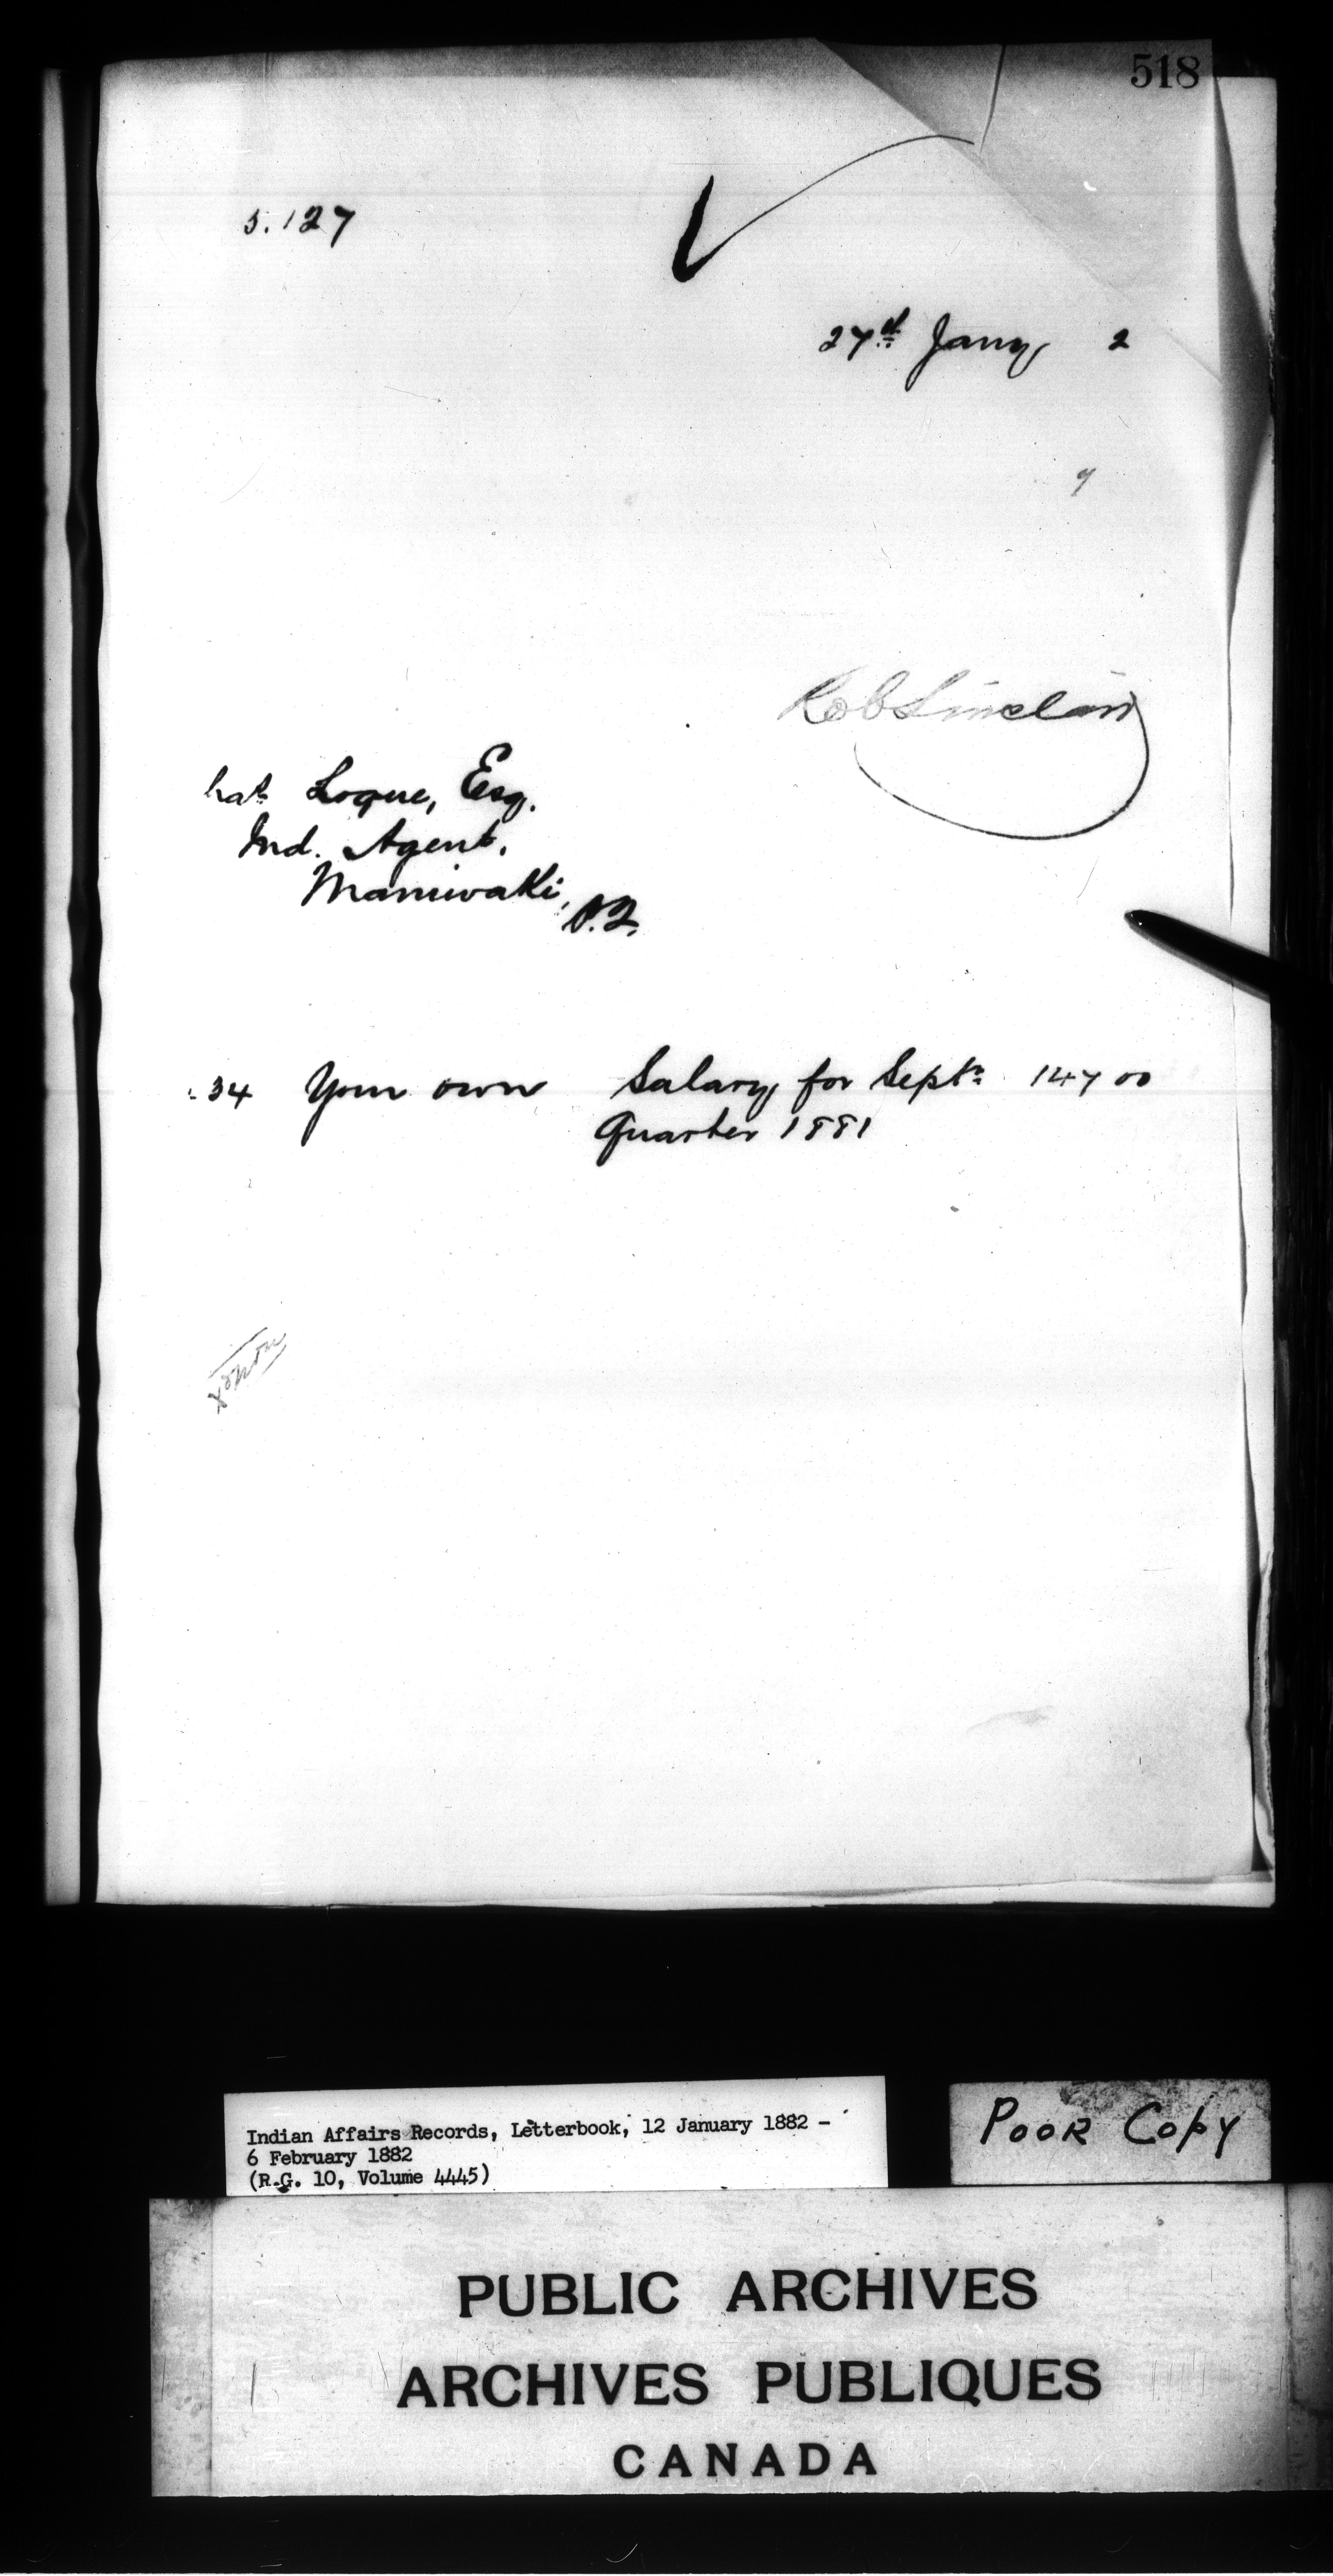 518
5.127
27th Jany 2
Rob Sinclair
hat Logue, Esq.
Ind. Agent,
Maniwaki,
P.Q.
34 Your own Salary for Septr 147 00
Quarter 1881
Indian Affairs Records, Letterbook, 12 January 1882 –
6 February 1882
(R.G. 10, Volume 4445)
POOR COPY
PUBLIC ARCHIVES
ARCHIVES PUBLIQUES
CANADA